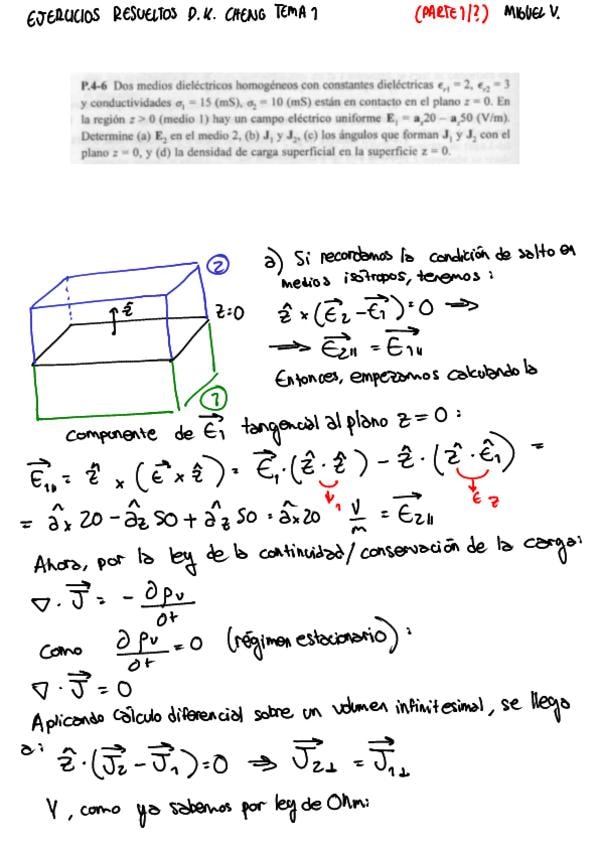 EJERCICIOS RESUELTOS D.K. CHENG TEMA 1 (PARTE 1/?) MIGUEL V.
P.4-6 Dos medios dieléctricos homogéneos con constantes dieléctricas ϵr1 = 2, ϵr2 = 3
y conductividades σ1 = 15 (mS), σ2 = 10 (mS) están en contacto en el plano z = 0. En
la región z > 0 (medio 1) hay un campo eléctrico uniforme E1 = ax20 − az50 (V/m).
Determine (a) E2 en el medio 2, (b) J1 y J2, (c) los ángulos que forman J1 y J2 con el
plano z = 0, y (d) la densidad de carga superficial en la superficie z = 0.
a) Si recordamos la condición de salto en
medios isótropos, tenemos:
② ẑ z=0 ①
ẑ × (E⃗2 − E⃗1) = 0 ⇒
⇒ E⃗2∥ = E⃗1∥
Entonces, empezamos calculando la
componente de E⃗1 tangencial al plano z = 0:
E⃗1∥ = ẑ × (E⃗ × ẑ) = E⃗1 · (ẑ · ẑ) − ẑ · (ẑ · Ê1) =
1 Ez
= âx 20 − âz 50 + âz 50 = âx 20 V/m = E⃗2∥
Ahora, por la ley de la continuidad/conservación de la carga:
∇ · J⃗ = − ∂ρv/∂t
Como ∂ρv/∂t = 0 (régimen estacionario):
∇ · J⃗ = 0
Aplicando cálculo diferencial sobre un volumen infinitesimal, se llega
a: ẑ · (J⃗2 − J⃗1) = 0 ⇒ J⃗2⊥ = J⃗1⊥
Y, como ya sabemos por ley de Ohm: